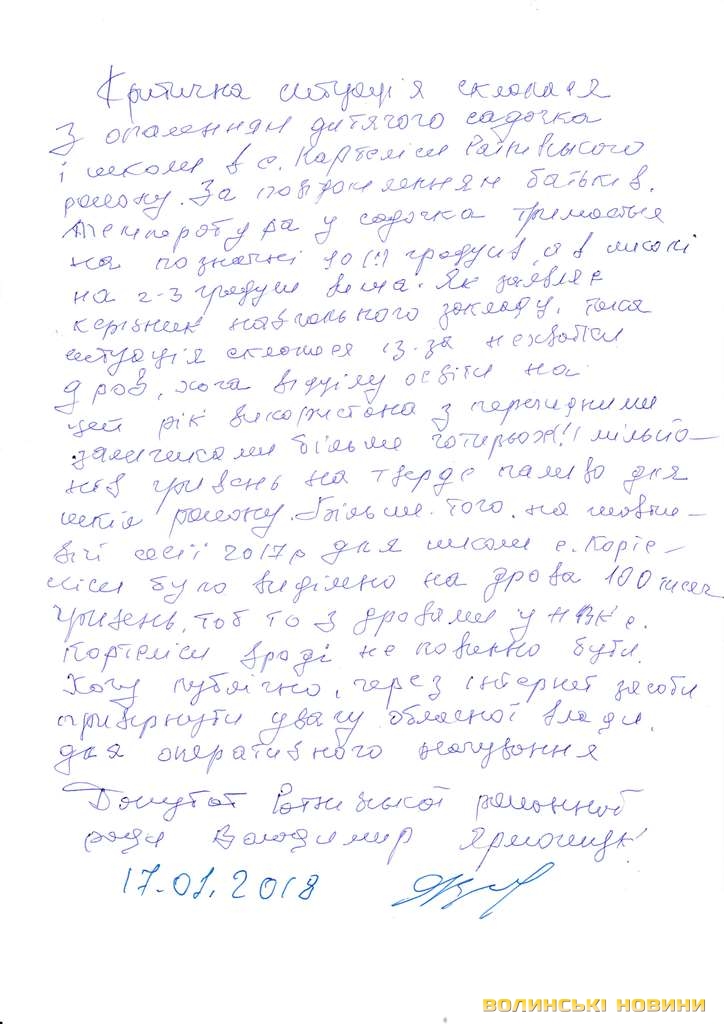 Критична ситуація склалася
з опаленням дитячого садочка
і школи в с. Кортеліси Ратнівського
району. За повідомленням батьків,
температура у садочка тримається
на позначці 10 (!) градусів, а в школі
на 2-3 градуси вища. Як заявляє
керівник навчального закладу, така
ситуація склалася із-за нехватки
дров, хоча відділу освіти на
цей рік використана з перехідними
залишками більше чотирьох!! мільйо-
нів гривень на тверде паливо для
шкіл району. Більше того, на
сесії 2017р для школи с. Корте-
ліси було виділено на дрова 100 тисяч
гривень, тобто з дровами у НВК с.
Кортеліси вроді не повинно бути.
Хочу публічно, через інтернет засоби
привернути увагу обласної влади,
для оперативного
Депутат Ратнівської районної
ради Володимир
17.01.2018
ВОЛИНСЬКІ НОВИНИ